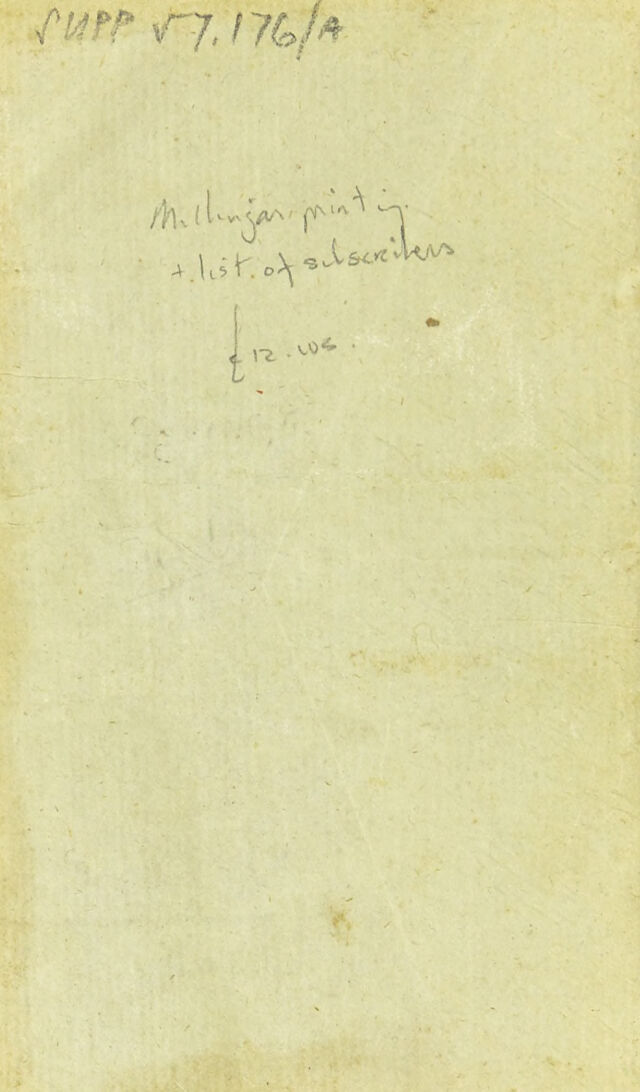 SUPP 57,176/A
Mullingar printing
+ list of subscribers
£12.10s.